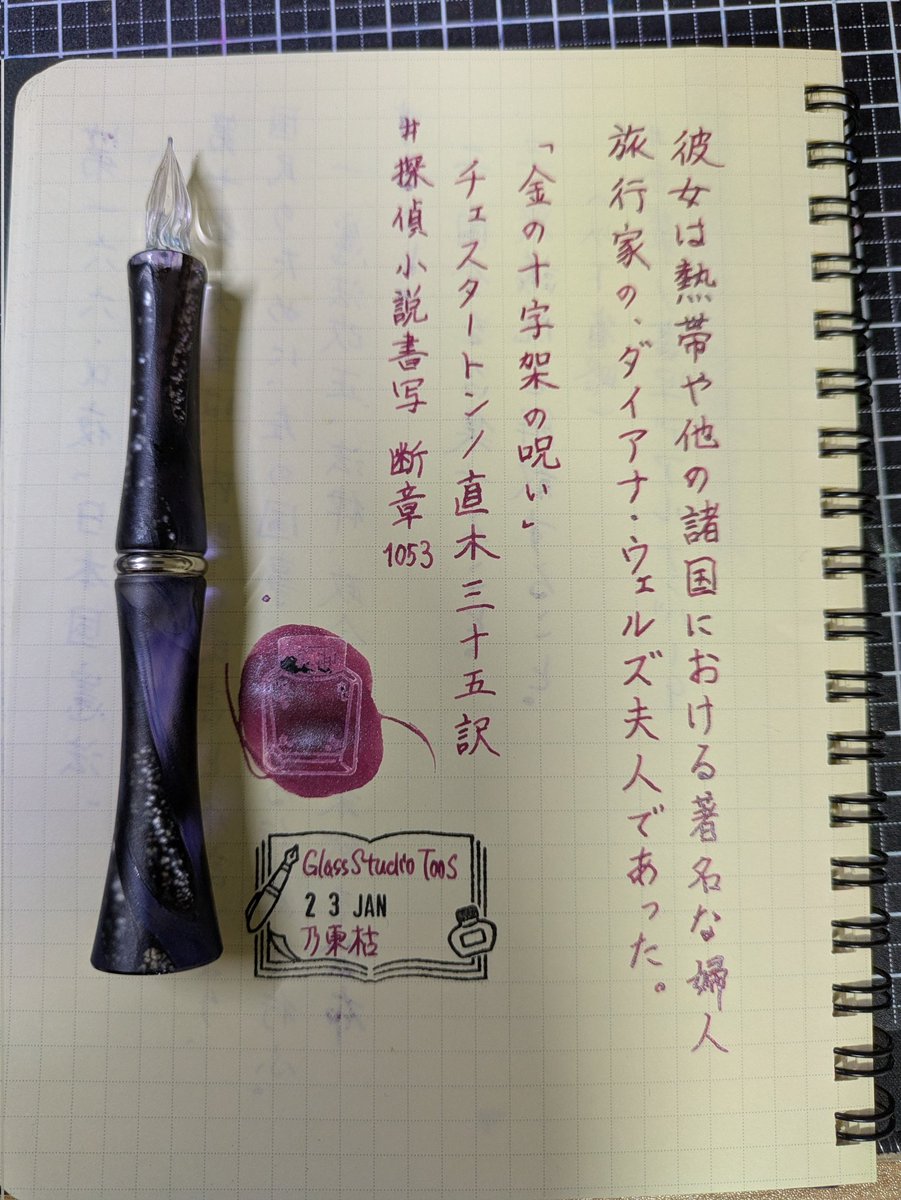 彼女は熱帯や他の諸国における著名な婦人
旅行家の、ダイアナ・ウェルズ夫人であった。
「金の十字架の呪い」
チェスタートン/直木三十五訳
#探偵小説書写 断章1053
GlassStudio Toos
23 JAN
乃東枯